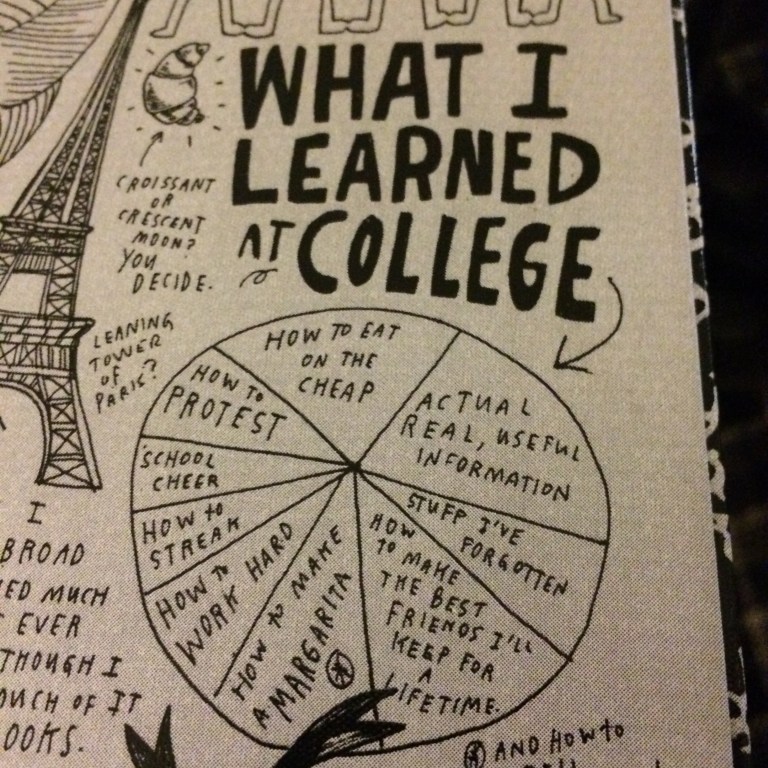 WHAT I
LEARNED
AT COLLEGE
CROISSANT
OR
CRESCENT
MOON?
YOU
DECIDE.
LEANING
TOWER
OF
PARIS?
HOW TO EAT
ON THE
CHEAP
ACTUAL
REAL, USEFUL
INFORMATION
STUFF I'VE
FORGOTTEN
HOW
TO MAKE
THE BEST
FRIENDS I'LL
KEEP FOR
A
LIFETIME.
HOW TO MAKE
A MARGARITA *
HOW TO
WORK HARD
HOW TO
STREAK
SCHOOL
CHEER
HOW TO
PROTEST
I
BROAD
ED MUCH
EVER
THOUGH I
OUCH OF IT
OOKS.
* AND HOW TO